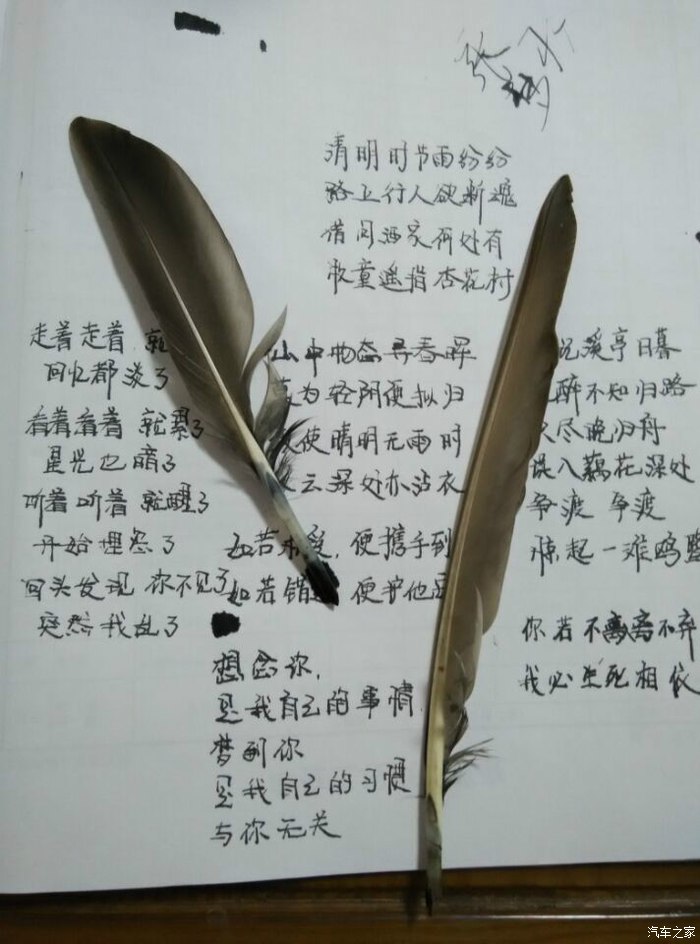 清明时节雨纷纷
路上行人欲断魂
借问酒家何处有
牧童遥指杏花村
走着走着 就
回忆都淡了
看着看着 就累了
星光也暗了
听着听着 就醒了
开始埋怨了
回头发现 你不见了
突然我乱了
山中物态弄春晖
为轻阴便拟归
使晴明无雨时
云深处亦沾衣
如若 便携手到
如若错 便护他
想念你,
是我自己的事情,
梦到你
是我自己的习惯
与你无关
记溪亭日暮
醉不知归路
尽晚归舟
误入藕花深处
争渡 争渡
惊起一滩鸥鹭
你若不离不弃
我必生死相依
汽车之家